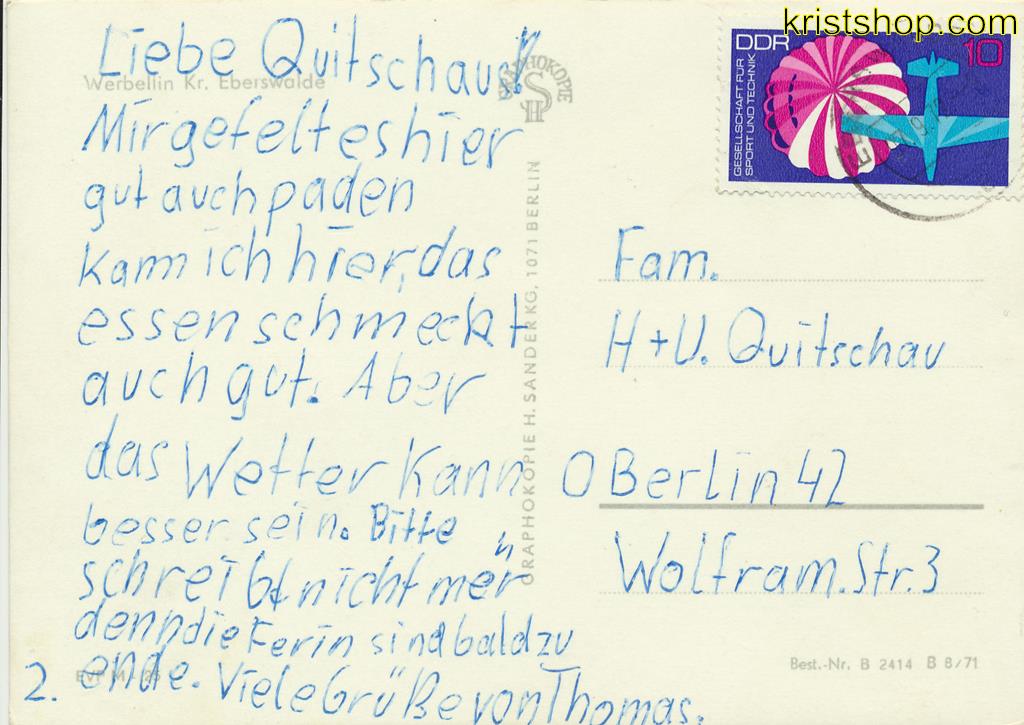 kristshop.com
Liebe Quitschaus!
Werbellin Kr. Eberswalde
GRAPHOKOPIE
H S
Mir gefelt es hier
gut auch paden
kann ich hier, das
essen schmeckt
auch gut. Aber
das Wetter kann
besser sein. Bitte
schreibt nicht mer
denn die Ferin sind bald zu
ende. Viele Grüße von Thomas.
2.
EVP M -,25
GRAPHOKOPIE H. SANDER KG, 1071 BERLIN
DDR
10
GESELLSCHAFT FÜR
SPORT UND TECHNIK
Fam.
H + U. Quitschau
O Berlin 42
Wolfram.Str.3
Best.-Nr. B 2414 B 8/71